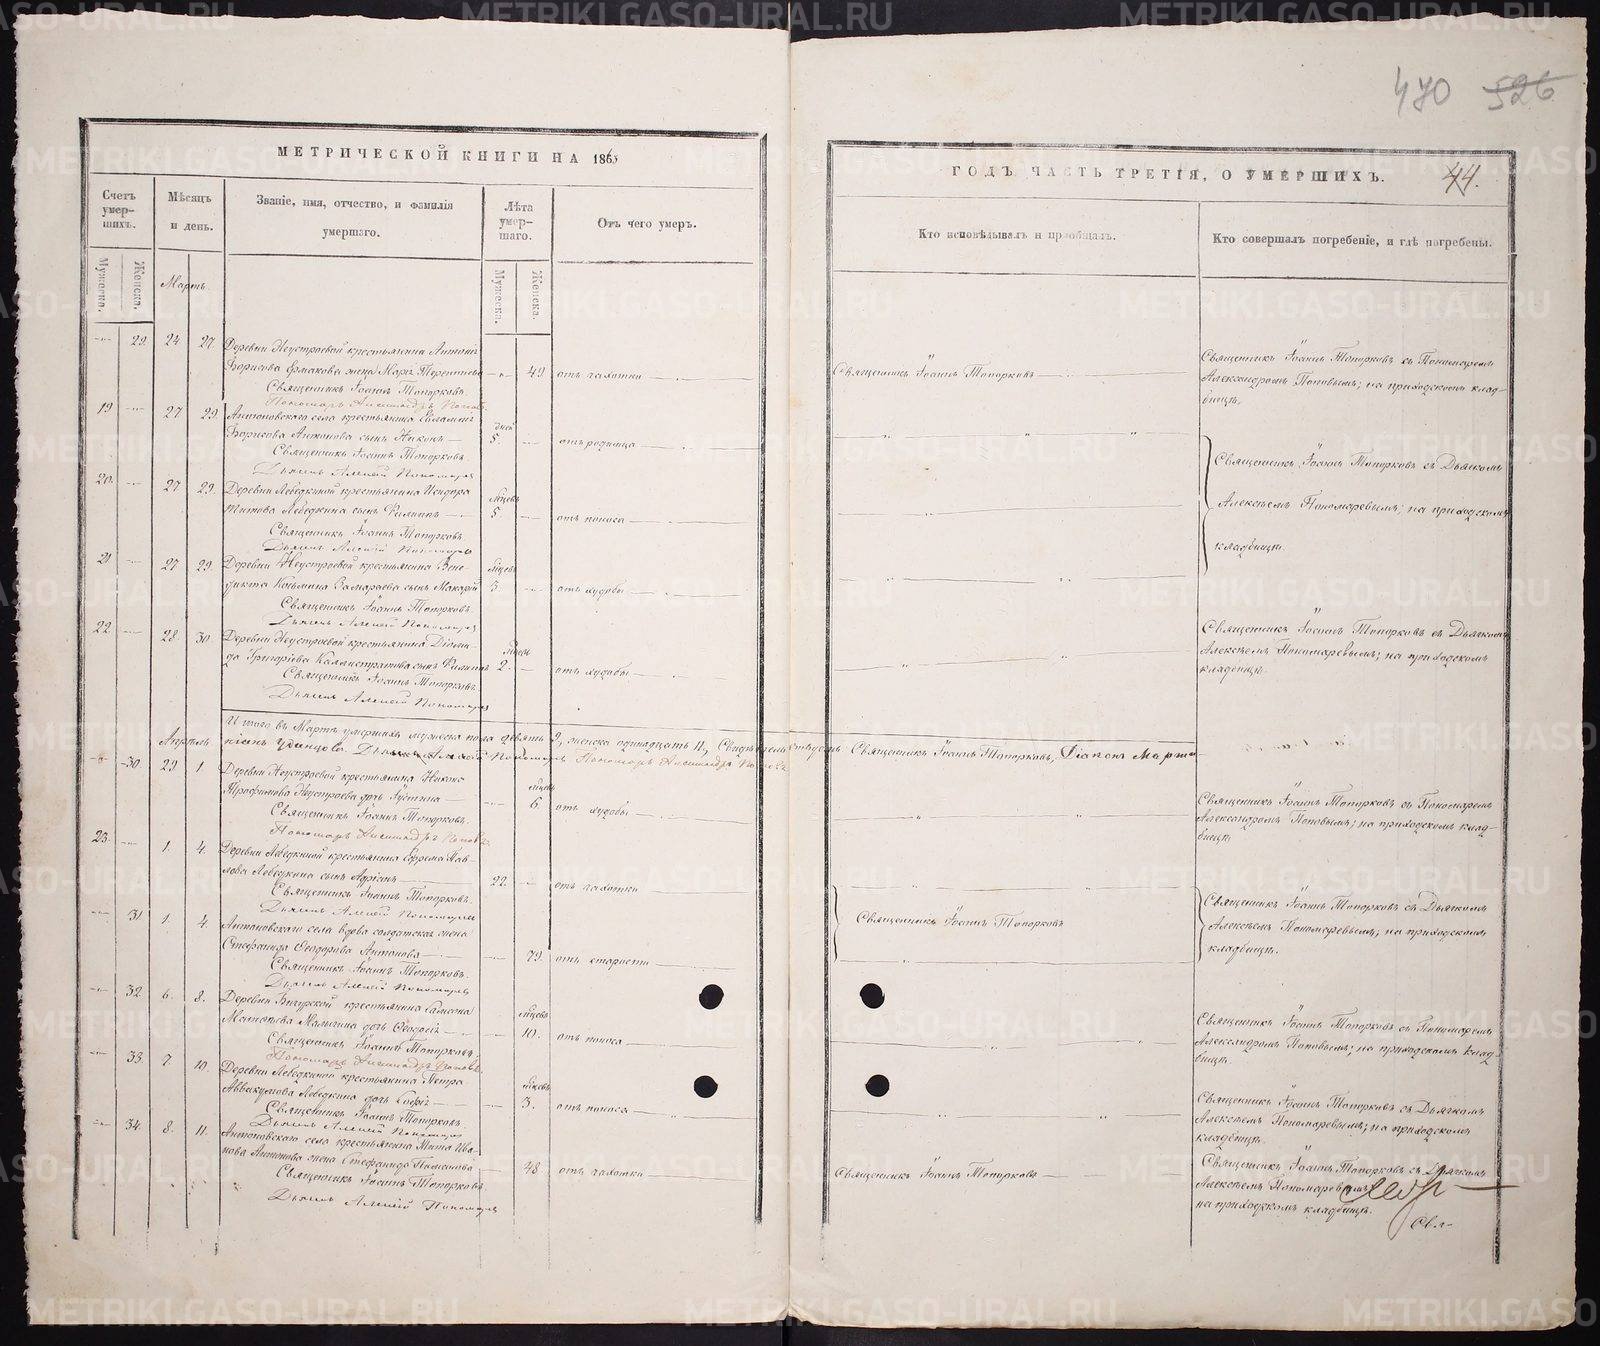 470 526
МЕТРИЧЕСКОЙ КНИГИ НА 1865
Счетъ умер-шихъ.
Мѣсяцъ и день.
Званіе, имя, отчество, и фамилія умершаго.
Лѣта умер-шаго.
Отъ чего умеръ.
Мужеска. Женска.
Мужеска. Женска.
Мартъ
29. 24 27. Деревни Неустроевой крестьянина Антона
Борисова жена Терентьева 49. отъ чахотки
Священникъ Іоаннъ Топорковъ.
Пономарь Александръ Поповъ.
19 27 29. Антоновскаго села крестьянина
Борисова Антонова сынъ Никонъ дней 5. отъ родимца
Священникъ Іоаннъ Топорковъ.
Дьячекъ Алексій Пономаревъ
20. 27 29. Деревни Лебедкиной крестьянина Исидора
Титова Лебедкина сынъ Филиппъ мѣсяцевъ 5. отъ поноса
Священникъ Іоаннъ Топорковъ.
Дьячекъ Алексій Пономаревъ
21 27 29. Деревни Неустроевой крестьянина Вене-
дикта Козьмина Замараева сынъ Макарій 3. отъ худобы
Священникъ Іоаннъ Топорковъ.
Дьячекъ Алексій Пономаревъ
22. 28. 30. Деревни Неустроевой крестьянина Діоми-
да Григоріева Каллистратова сынъ 2. отъ худобы
Священникъ Іоаннъ Топорковъ.
Дьячекъ Алексій Пономаревъ
Итого въ Мартѣ умершихъ мужеска пола девять 9, женска одинадцать 11,
Священникъ Іоаннъ Топорковъ, Діаконъ Марти-
ніанъ Удинцовъ Дьячекъ Алексій Пономаревъ Пономарь Александръ Поповъ
Апрѣль
30. 29. 1. Деревни Неустроевой крестьянина Никона
Трофимова Неустроева дочь Іустина 6. отъ худобы
Священникъ Іоаннъ Топорковъ.
Пономарь Александръ Поповъ.
23. 1. 4. Деревни Лебедкиной крестьянина Ефрема Пав-
лова Лебедкина сынъ Адріанъ 22. отъ чахотки
Священникъ Іоаннъ Топорковъ.
Дьячекъ Алексій Пономаревъ
31. 1. 4. Антоновскаго села вдова солдатская жена
Стефанида Ѳеодорова Антонова 79. отъ старости
Священникъ Іоаннъ Топорковъ.
Дьячекъ Алексій Пономаревъ
32. 6. 8. Деревни Бичурской крестьянина Самсона
Малыгина дочь Ѳеодосія 10. отъ поноса
Священникъ Іоаннъ Топорковъ.
Пономарь Александръ Поповъ
33. 7. 10. Деревни Лебедкиной крестьянина Петра
Аввакумова Лебедкина дочь Софія 3. отъ поноса
Священникъ Іоаннъ Топорковъ.
Дьячекъ Алексій Пономаревъ
34. 8. 11. Антоновскаго села крестьянина Тита Ива-
нова Антонова жена Стефанида 48 отъ чахотки
Священникъ Іоаннъ Топорковъ.
Дьячекъ Алексій Пономаревъ
ГОДЪ ЧАСТЬ ТРЕТІЯ, О УМЕРШИХЪ. 44.
Кто исповѣдывалъ и пріобщалъ.
Кто совершалъ погребеніе, и гдѣ погребены.
Священникъ Іоаннъ Топорковъ
Священникъ Іоаннъ Топорковъ съ Пономаремъ
Александромъ Поповымъ; на приходскомъ клад-
бищѣ.
Священникъ Іоаннъ Топорковъ съ Дьячкомъ
Алексѣемъ Пономаревымъ; на приходскомъ
кладбищѣ.
Священникъ Іоаннъ Топорковъ съ Дьячкомъ
Алексѣемъ Пономаревымъ; на приходскомъ
кладбищѣ.
Священникъ Іоаннъ Топорковъ съ Пономаремъ
Александромъ Поповымъ; на приходскомъ клад-
бищѣ
Священникъ Іоаннъ Топорковъ
Священникъ Іоаннъ Топорковъ съ Дьячкомъ
Алексѣемъ Пономаревымъ; на приходскомъ
кладбищѣ.
Священникъ Іоаннъ Топорковъ съ Пономаремъ
Александромъ Поповымъ; на приходскомъ клад-
бищѣ.
Священникъ Іоаннъ Топорковъ съ Дьячкомъ
Алексѣемъ Пономаревымъ; на приходскомъ
кладбищѣ.
Священникъ Іоаннъ Топорковъ
Священникъ Іоаннъ Топорковъ съ Дьячкомъ
Алексѣемъ Пономаревымъ
на приходскомъ кладбищѣ.
METRIKI.GASO-URAL.RU